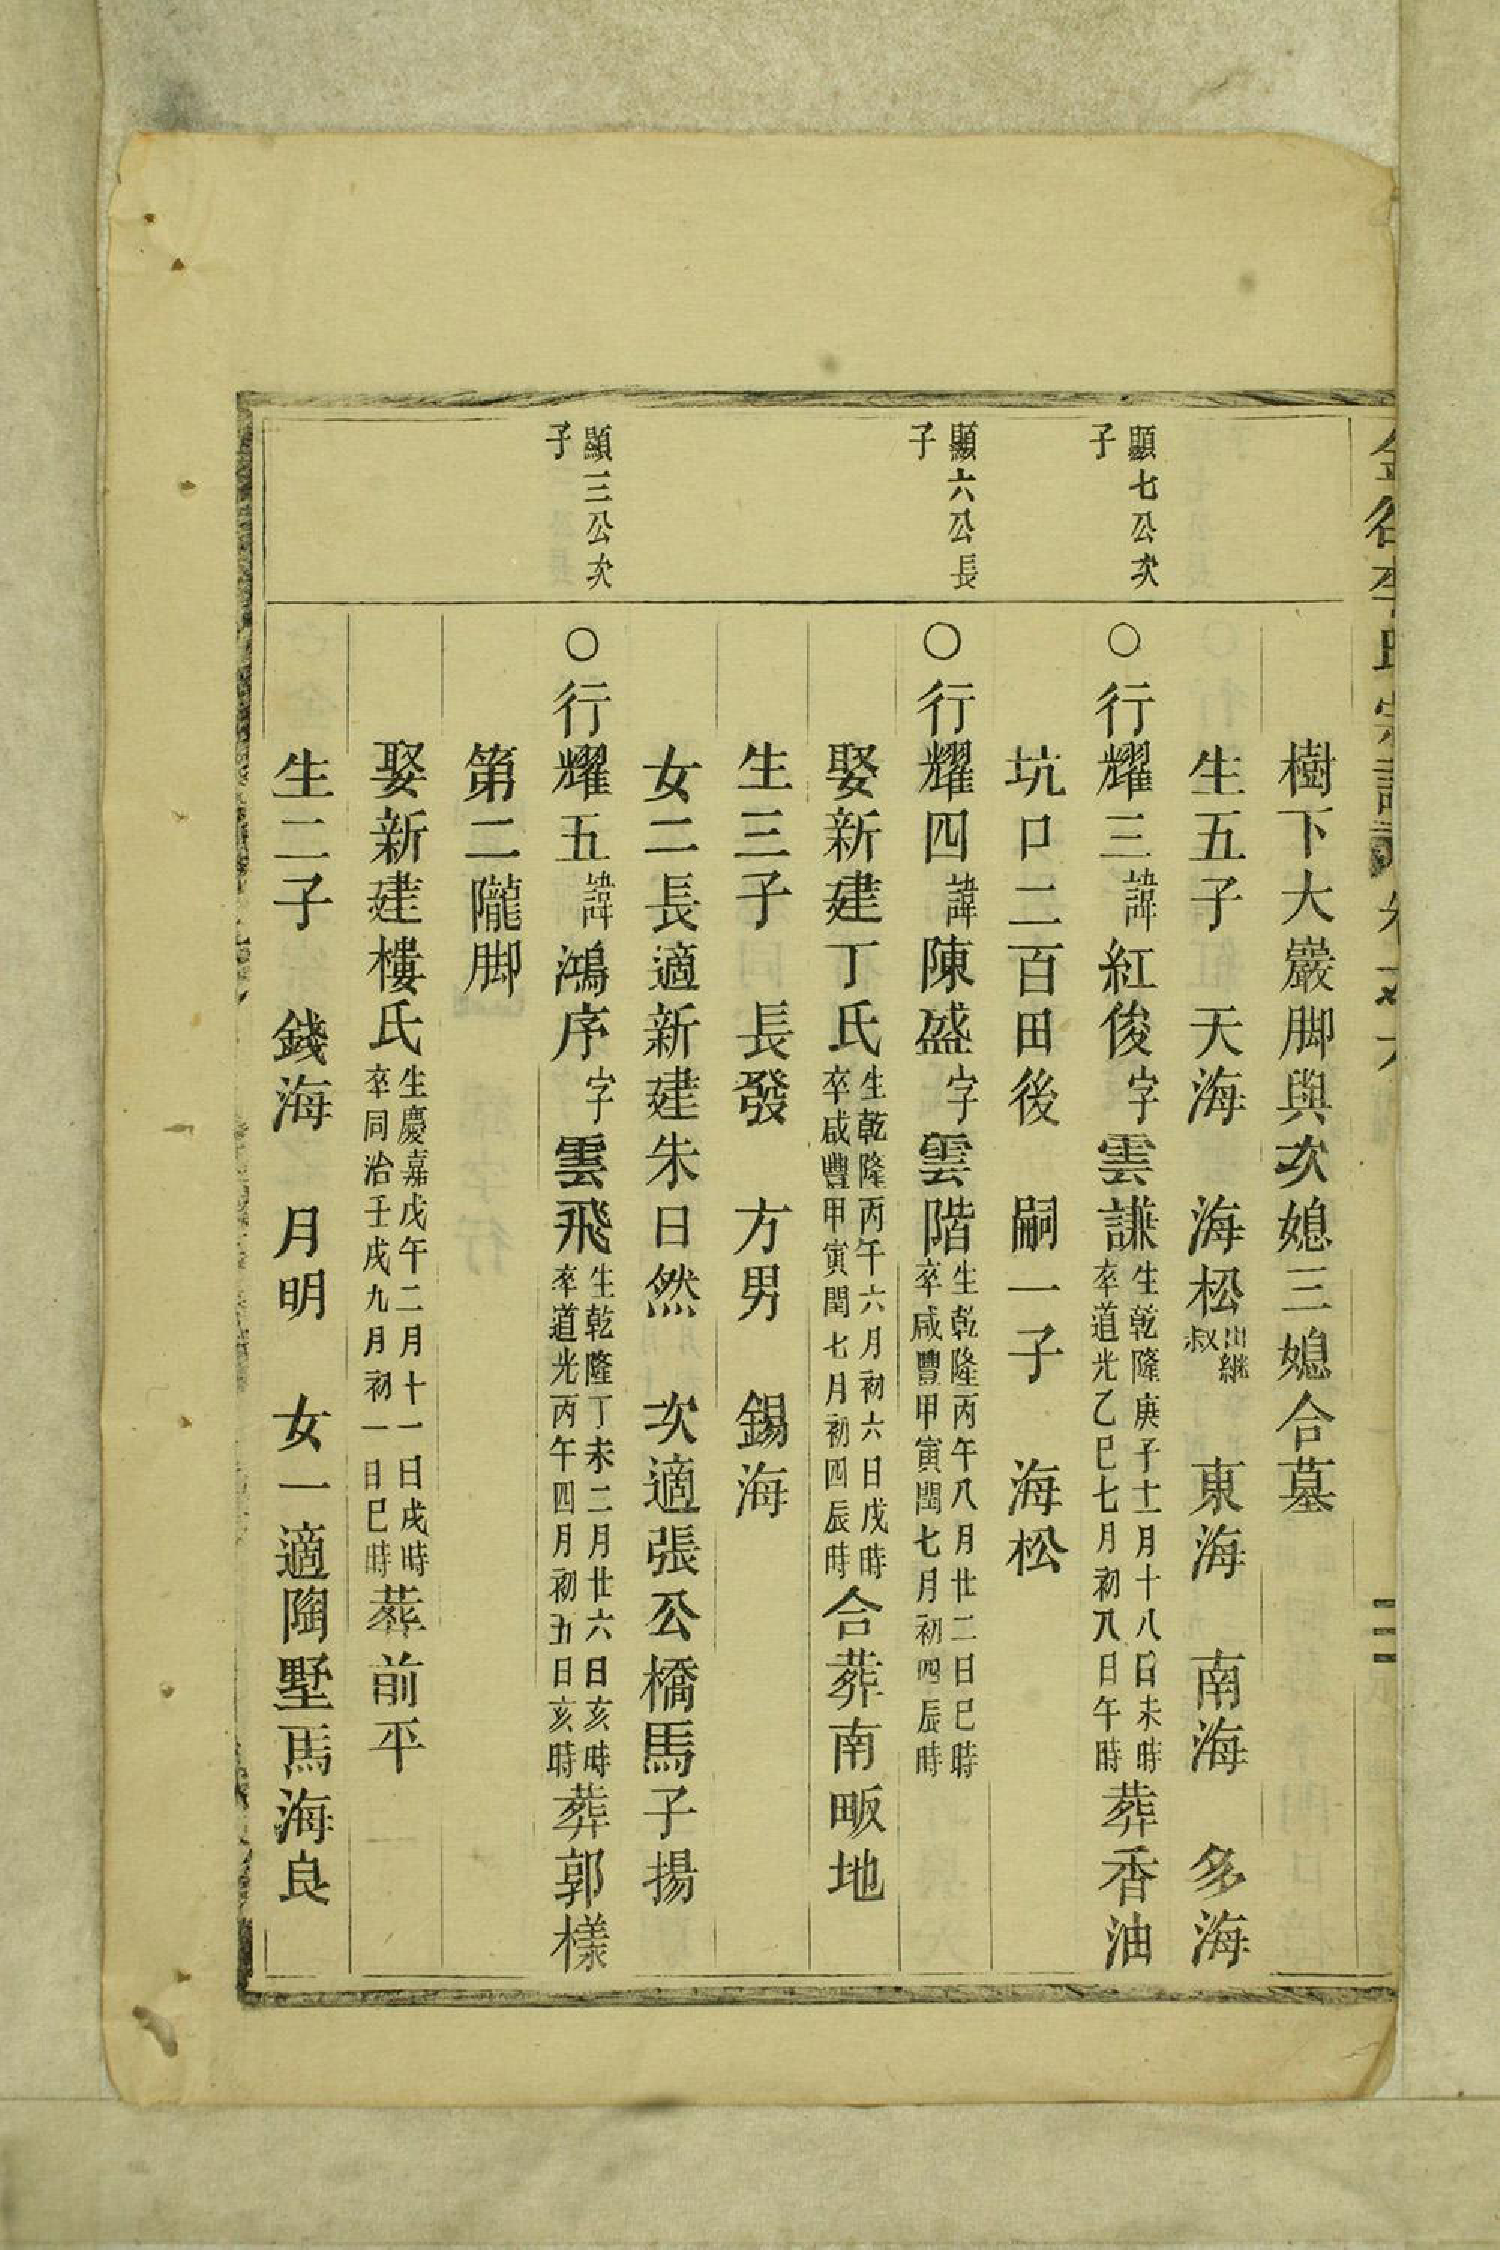 樹下大巖脚與次媳三媳合墓
生五子　天海　海松出繼叔　東海　南海　多海
顯七公次子
○行耀三諱紅俊字雲謙生乾隆庚子十二月十八日未時卒道光乙巳七月初八日午時葬香油
坑口二百田後　嗣一子　海松
顯六公長子
○行耀四諱陳盛字雲階生乾隆丙午八月廿二日巳時卒咸豐甲寅閏七月初四辰時
娶新建丁氏生乾隆丙午六月初六日戌時卒咸豐甲寅閏七月初四辰時合葬南畈地
生三子　長發　方男　錫海
女二長適新建朱日然　次適張公橋馬子揚
顯三公次子
○行耀五諱鴻序字雲飛生乾隆丁未二月廿六日亥時卒道光丙午四月初五日亥時葬郭樣
第二隴脚
娶新建樓氏生慶嘉戊午二月十一日戌時卒同治壬戌九月初一日巳時葬前平
生二子　錢海　月明　女一適陶墅馬海良